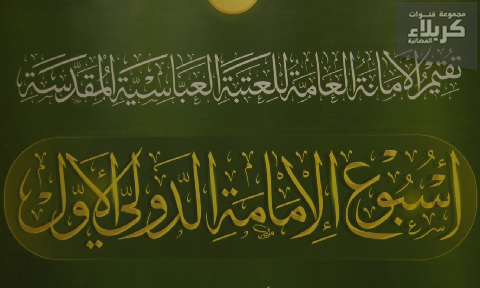 مجموعة قنوات
كربلاء
الفضائية
تقيم الأمانة العامة للعتبة العباسية المقدسة
أسبوع الإمامة الدولي الأول